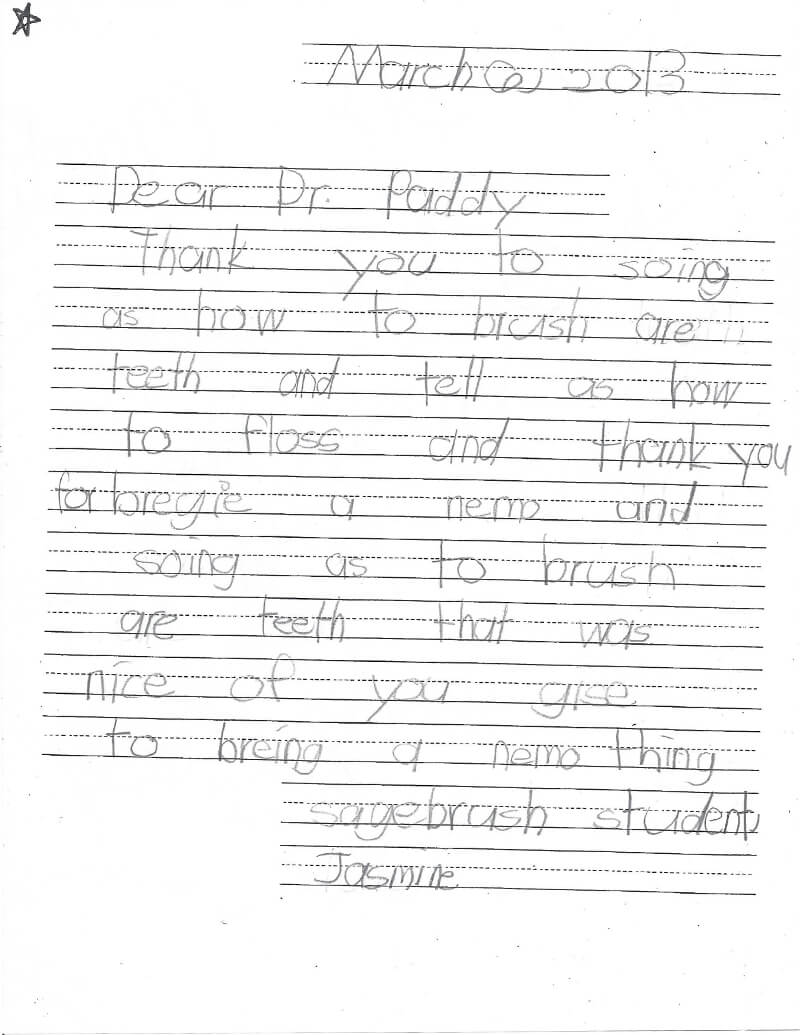 March 6, 2013
Dear Dr. Paddy
Thank you to soing
as how to brush are
teeth and tell as how
to floss and thank you
for bregie a nemo and
soing as to brush
are teeth that was
nice of you gise
to breing a nemo thing
sagebrush student
Jasmine